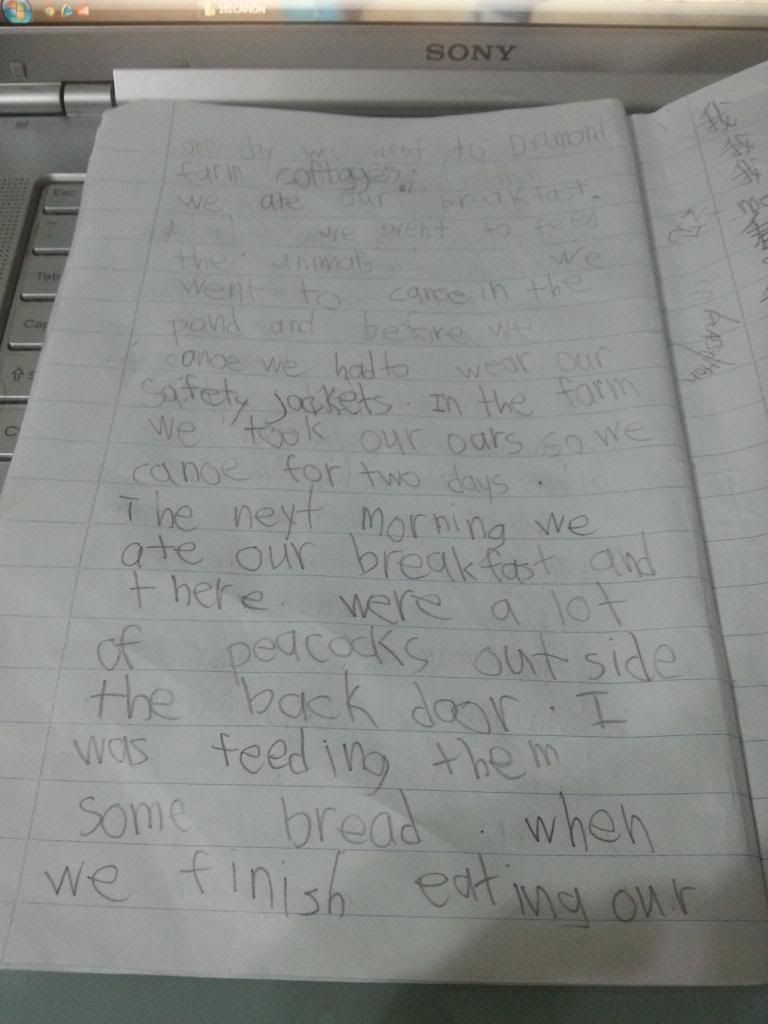 101CANON
SONY
Esc
Tab
Cap
one day we went to Diamont
farm cottages.
we ate our breakfast.
we went to feed
the animals we
went to canoe in the
pond and before we
canoe we had to wear our
safety jackets. In the farm
we took our oars so we
canoe for two days.
The next morning we
ate our breakfast and
there were a lot
of peacocks outside
the back door. I
was feeding them
some bread. when
we finish eating our
我
我
我